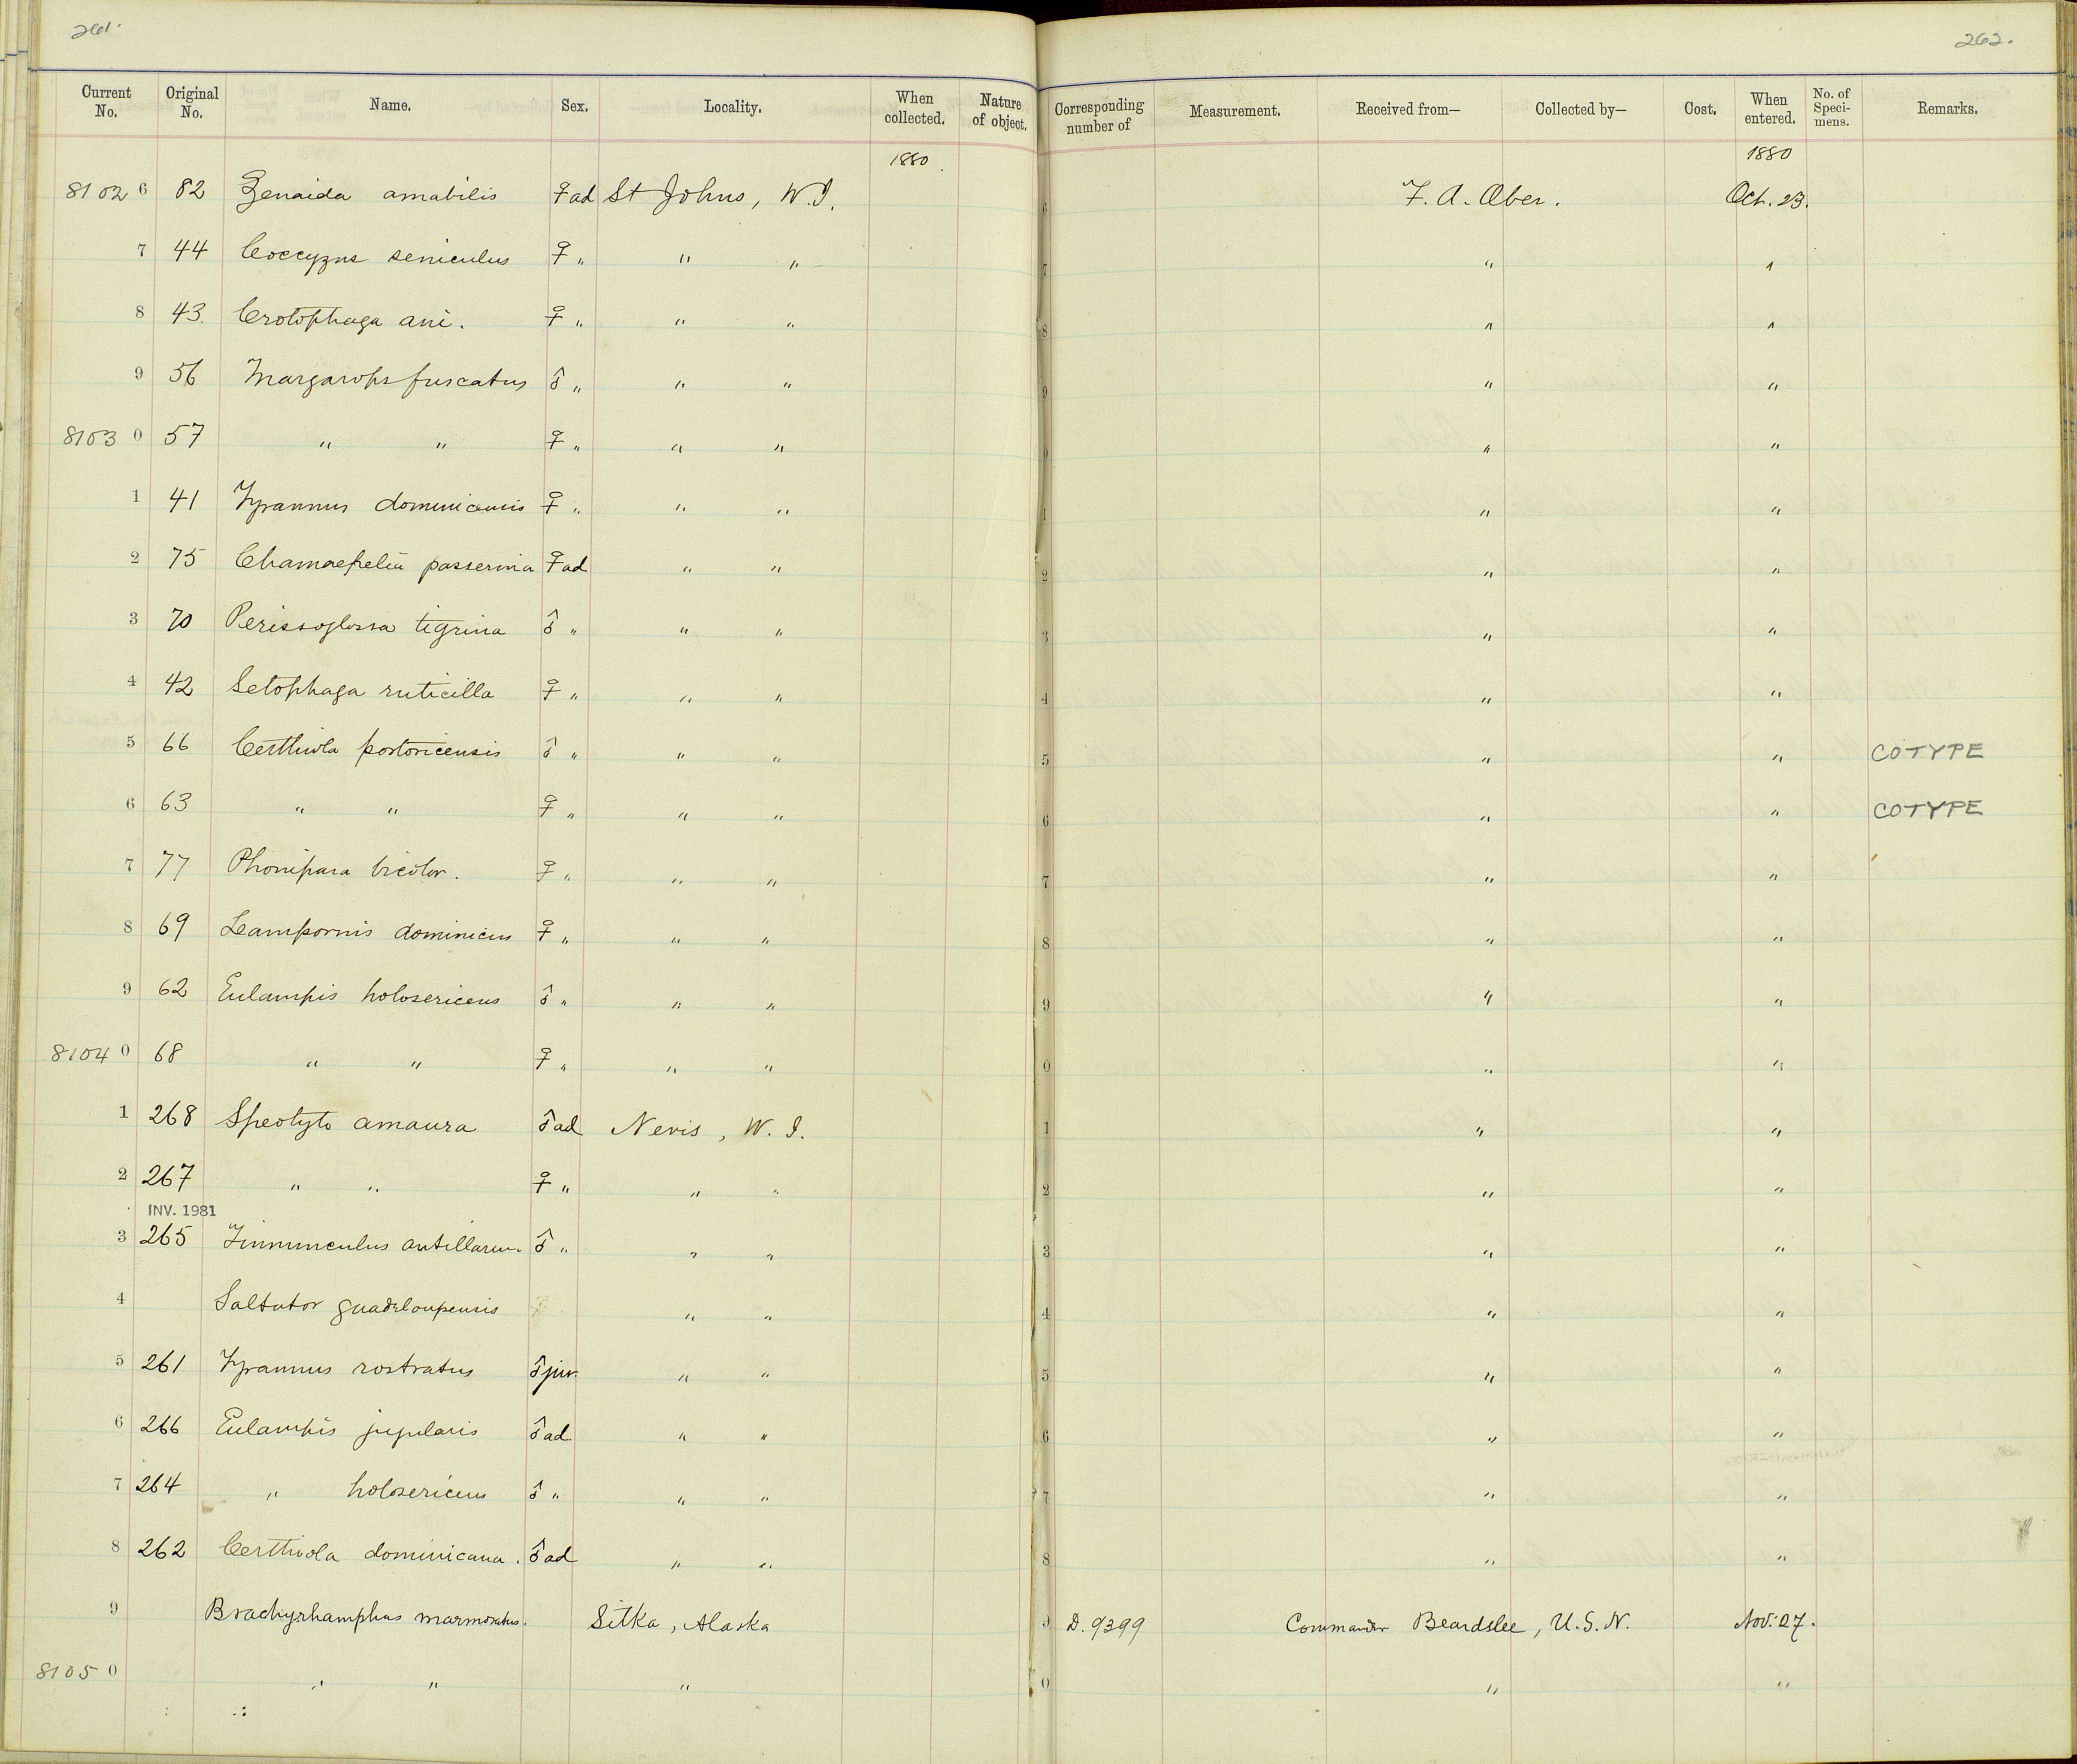 261.
262.
Current No. Original No. Name. Sex. Locality. When collected. Nature of object. Corresponding number of Measurement. Received from— Collected by— Cost. When entered. No. of Speci-mens. Remarks.
1880 1880
8102 6 82 Zenaida amabilis ♀ ad St Johns, W.I. 6 F. A. Ober. Oct. 23.
7 44 Coccyzus seniculus ♀ " " " 7 " "
8 43. Crotophaga ani. ♀ " " " 8 " "
9 56 Margarops fuscatus ♂ " " " 9 " "
8103 0 57 " " ♀ " " " 0 " "
1 41 Tyrannus dominicensis ♀ " " " 1 " "
2 75 Chamaepelia passerina ♀ ad " " 2 " "
3 70 Perissoglossa tigrina ♂ " " " 3 " "
4 42 Setophaga ruticilla ♀ " " " 4 " "
5 66 Certhiola portoricensis ♂ " " " 5 " " COTYPE
6 63 " " ♀ " " " 6 " " COTYPE
7 77 Phonipara bicolor. ♀ " " " 7 " "
8 69 Lampornis dominicus ♀ " " " 8 " "
9 62 Eulampis holosericeus ♂ " " " 9 " "
8104 0 68 " " ♀ " " " 0 " "
1 268 Speotyto amaura ♂ ad Nevis, W. I. 1 " "
2 267 " " ♀ " " " 2 " "
INV. 1981
3 265 Tinnunculus antillarum ♂ " " " 3 " "
4 Saltator guadeloupensis " " 4 " "
5 261 Tyrannus rostratus ♂ juv. " " 5 " "
6 266 Eulampis jugularis ♂ ad " " 6 " "
7 264 " holosericeus ♂ " " " 7 " "
8 262 Certhiola dominicana. ♂ ad " " 8 " "
9 Brachyrhamphus marmoratus. Sitka, Alaska 9 D. 9399 Commander Beardslee, U.S.N. Nov. 27.
8105 0 " " " 0 " "